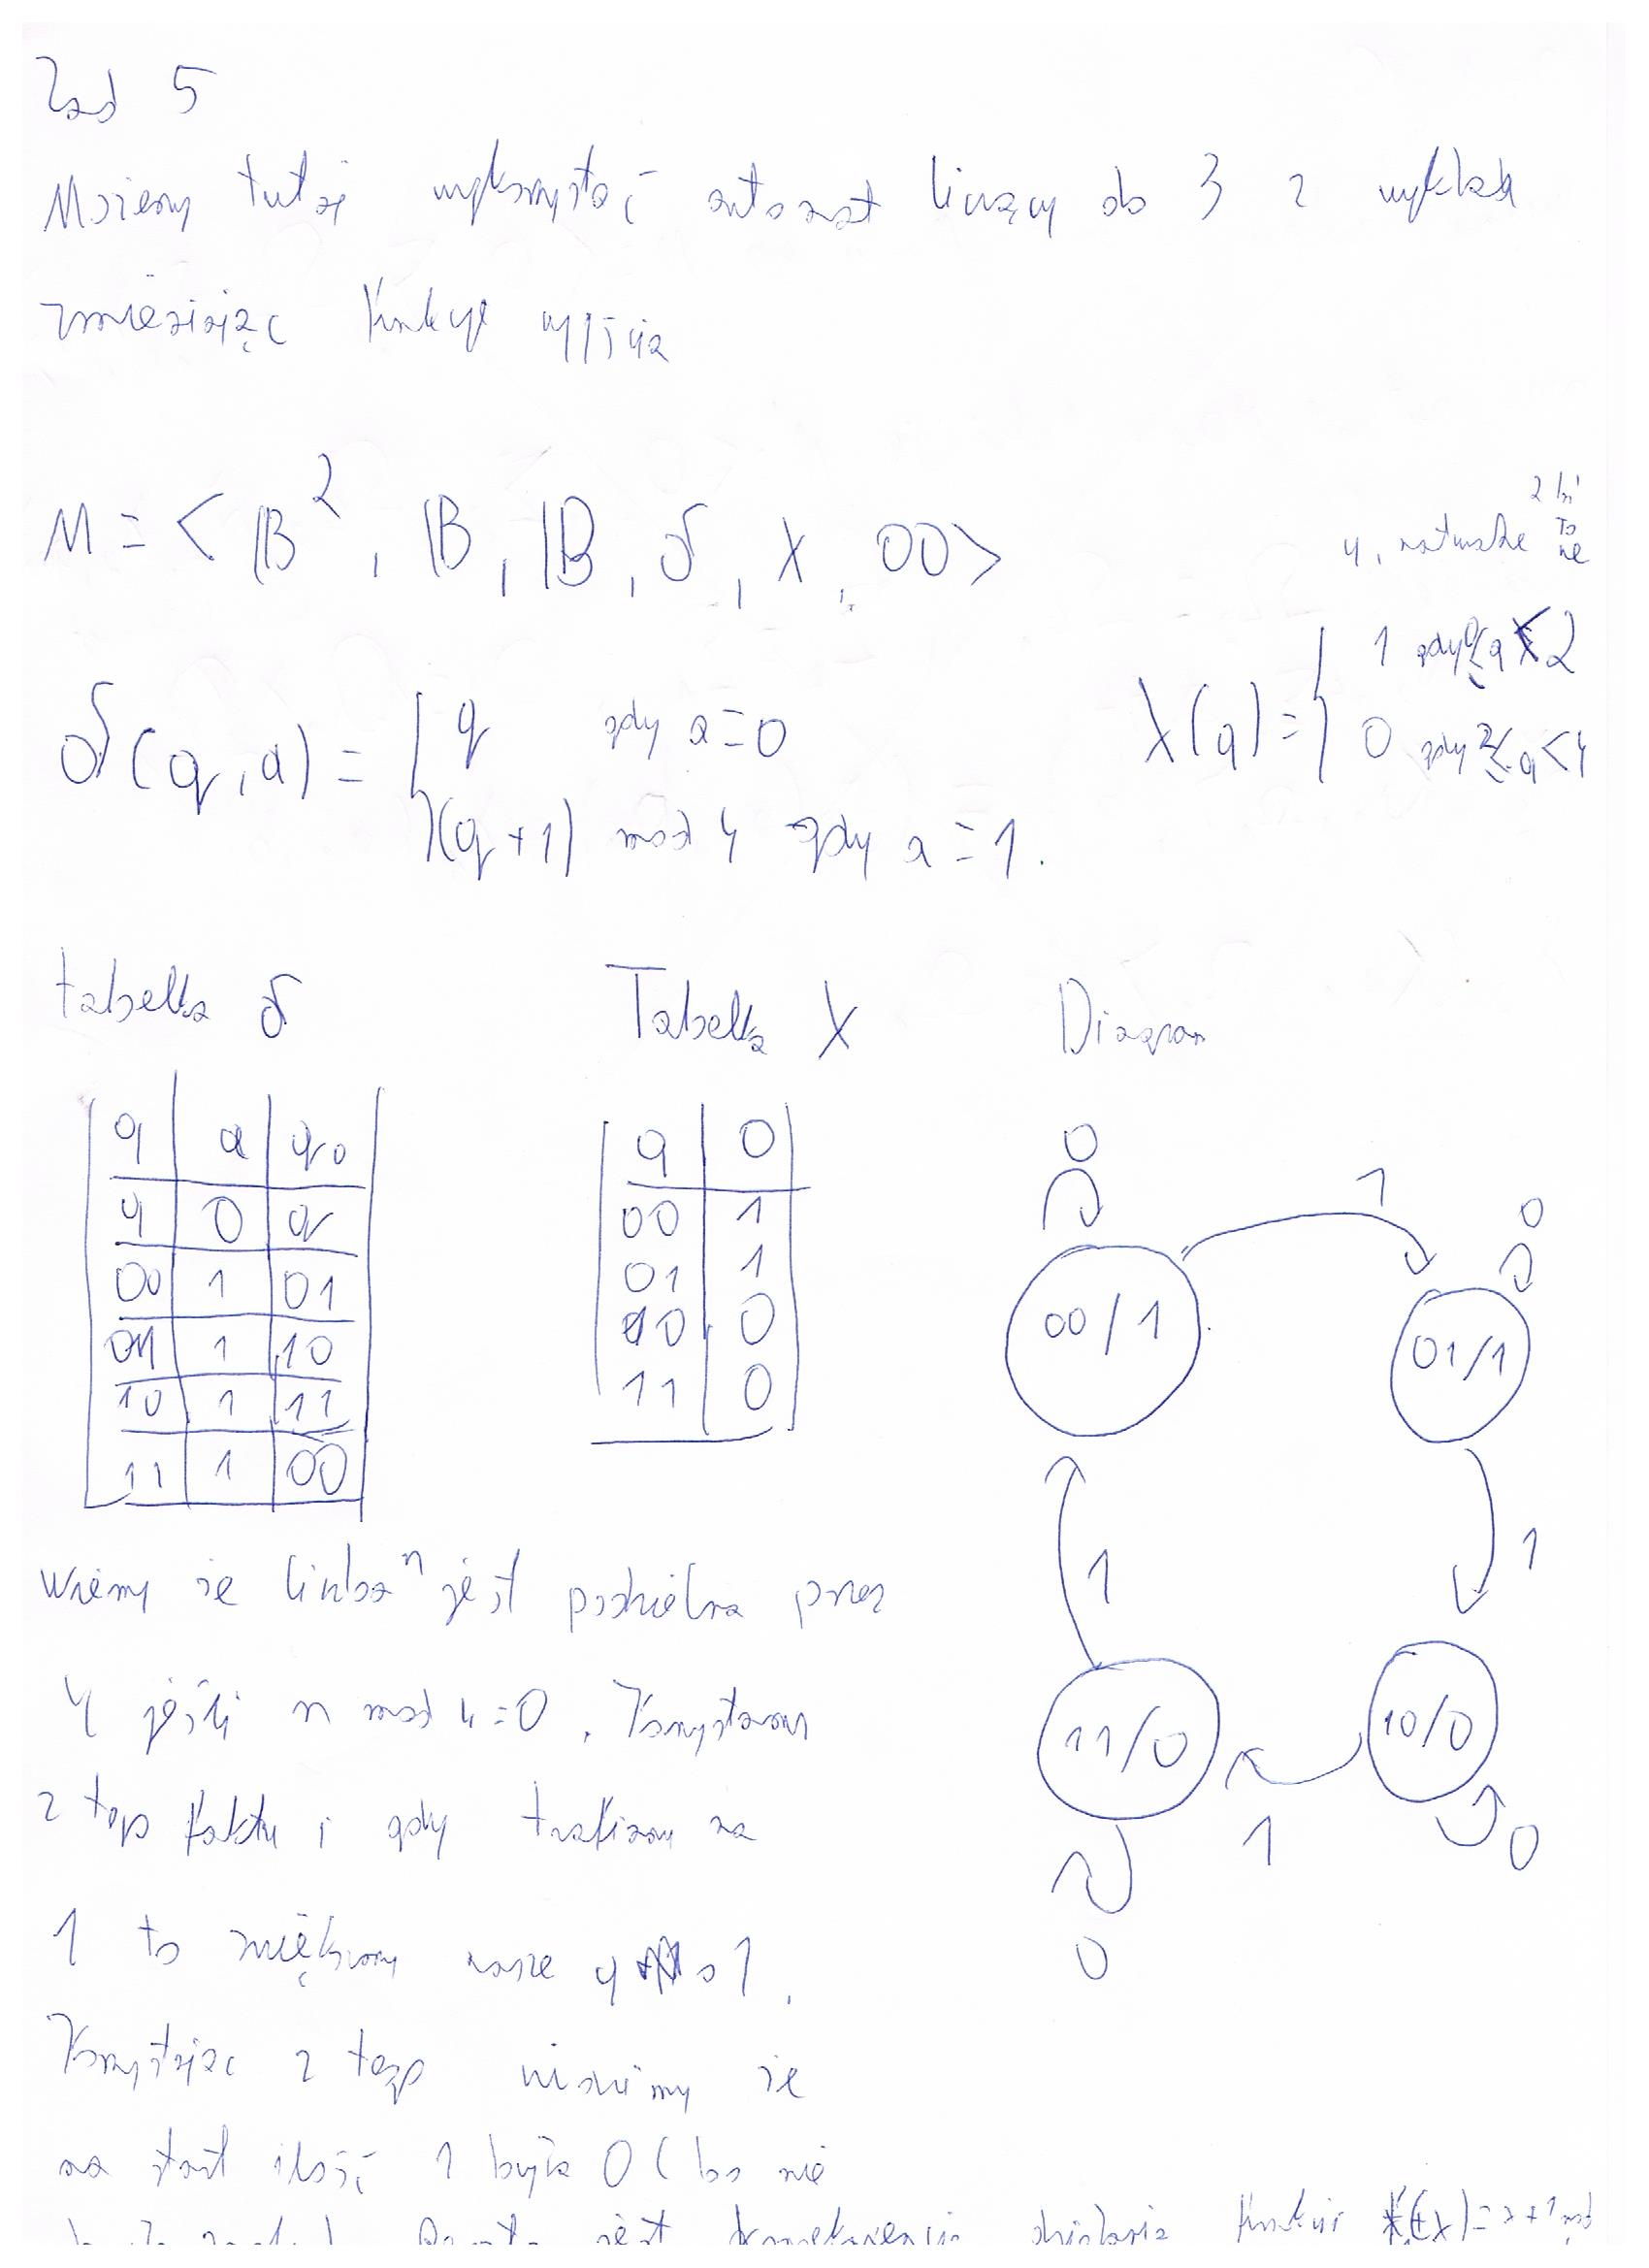 Zad 5
Możemy tutaj wykorzystać automat liczący do 3 z wykładu
zmieniając funkcję wyjścia
M = < B², B, B, δ, λ, 00>
δ(q,a) = { q gdy a=0
(q+1) mod 4 gdy a=1.
λ(q) = { 1 gdy 0≤q<2
0 gdy 2≤q<4
tabelka δ
q a q0
q 0 q
00 1 01
01 1 10
10 1 11
11 1 00
Tabelka λ
q 0
00 1
01 1
10 0
11 0
Diagram
0
1
0
00/1
01/1
1
1
11/0
10/0
1
0
0
Wiemy że liczba n jest podzielna przez
4 jeśli n mod 4=0. Korzystamy
z tego faktu i gdy trafiamy na
1 to zwiększamy nasze q o 1.
Korzystając z tego wiemy że
na start ilość 1 była 0 (bo nie
jest konsekwencją działania funkcji